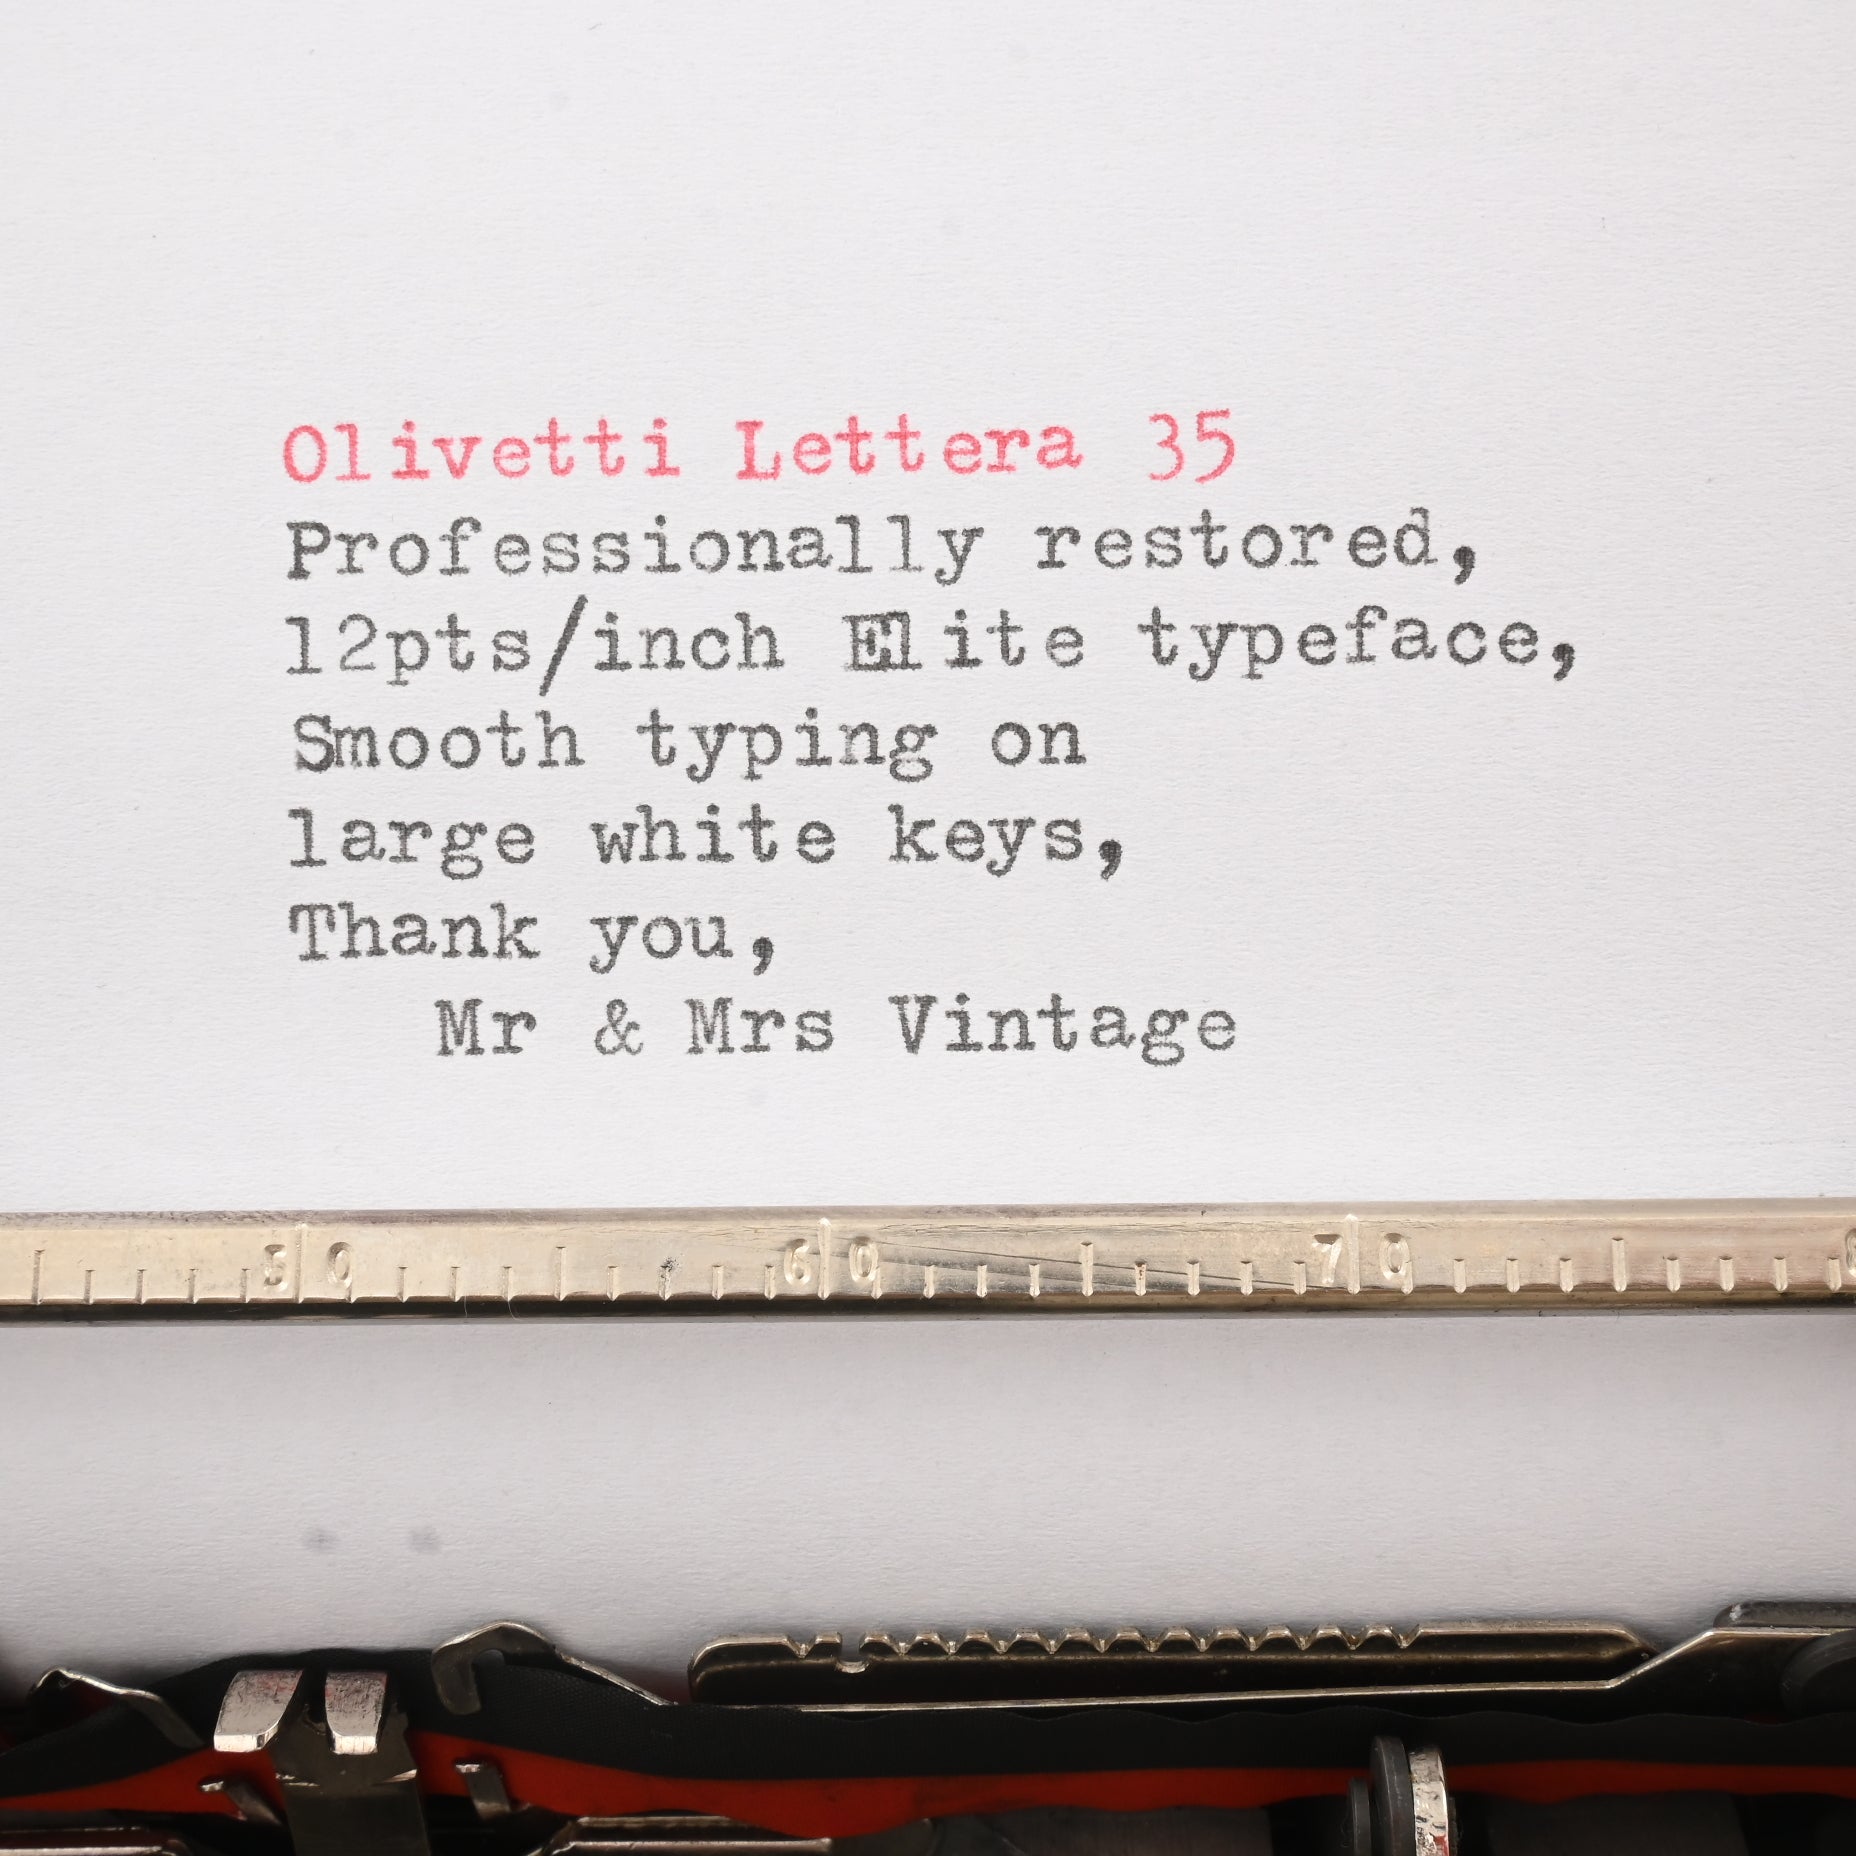 Olivetti Lettera 35
Professionally restored,
12pts/inch Elite typeface,
Smooth typing on
large white keys,
Thank you,
Mr & Mrs Vintage
50 60 70